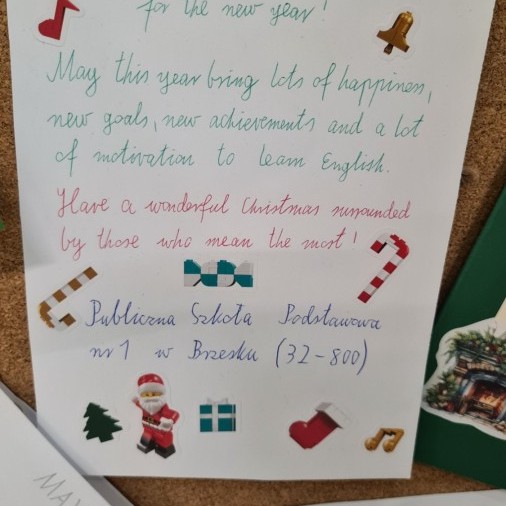 for the new year!
May this year bring lots of happiness,
new goals, new achievements and a lot
of motivation to learn English.
Have a wonderful Christmas surrounded
by those who mean the most!
Publiczna Szkoła Podstawowa
nr 1 w Brzesku (32-800)
MA